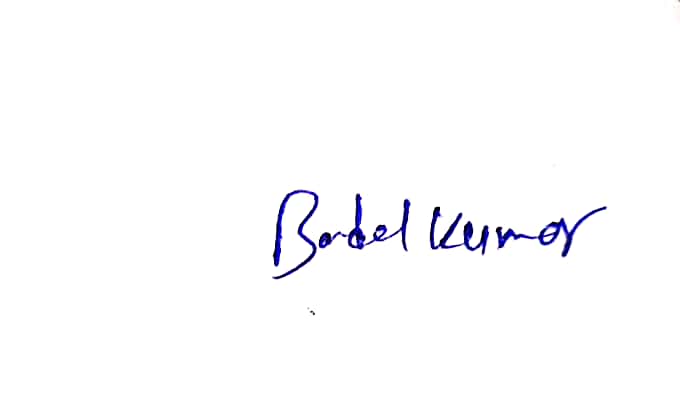 Badal Kumar